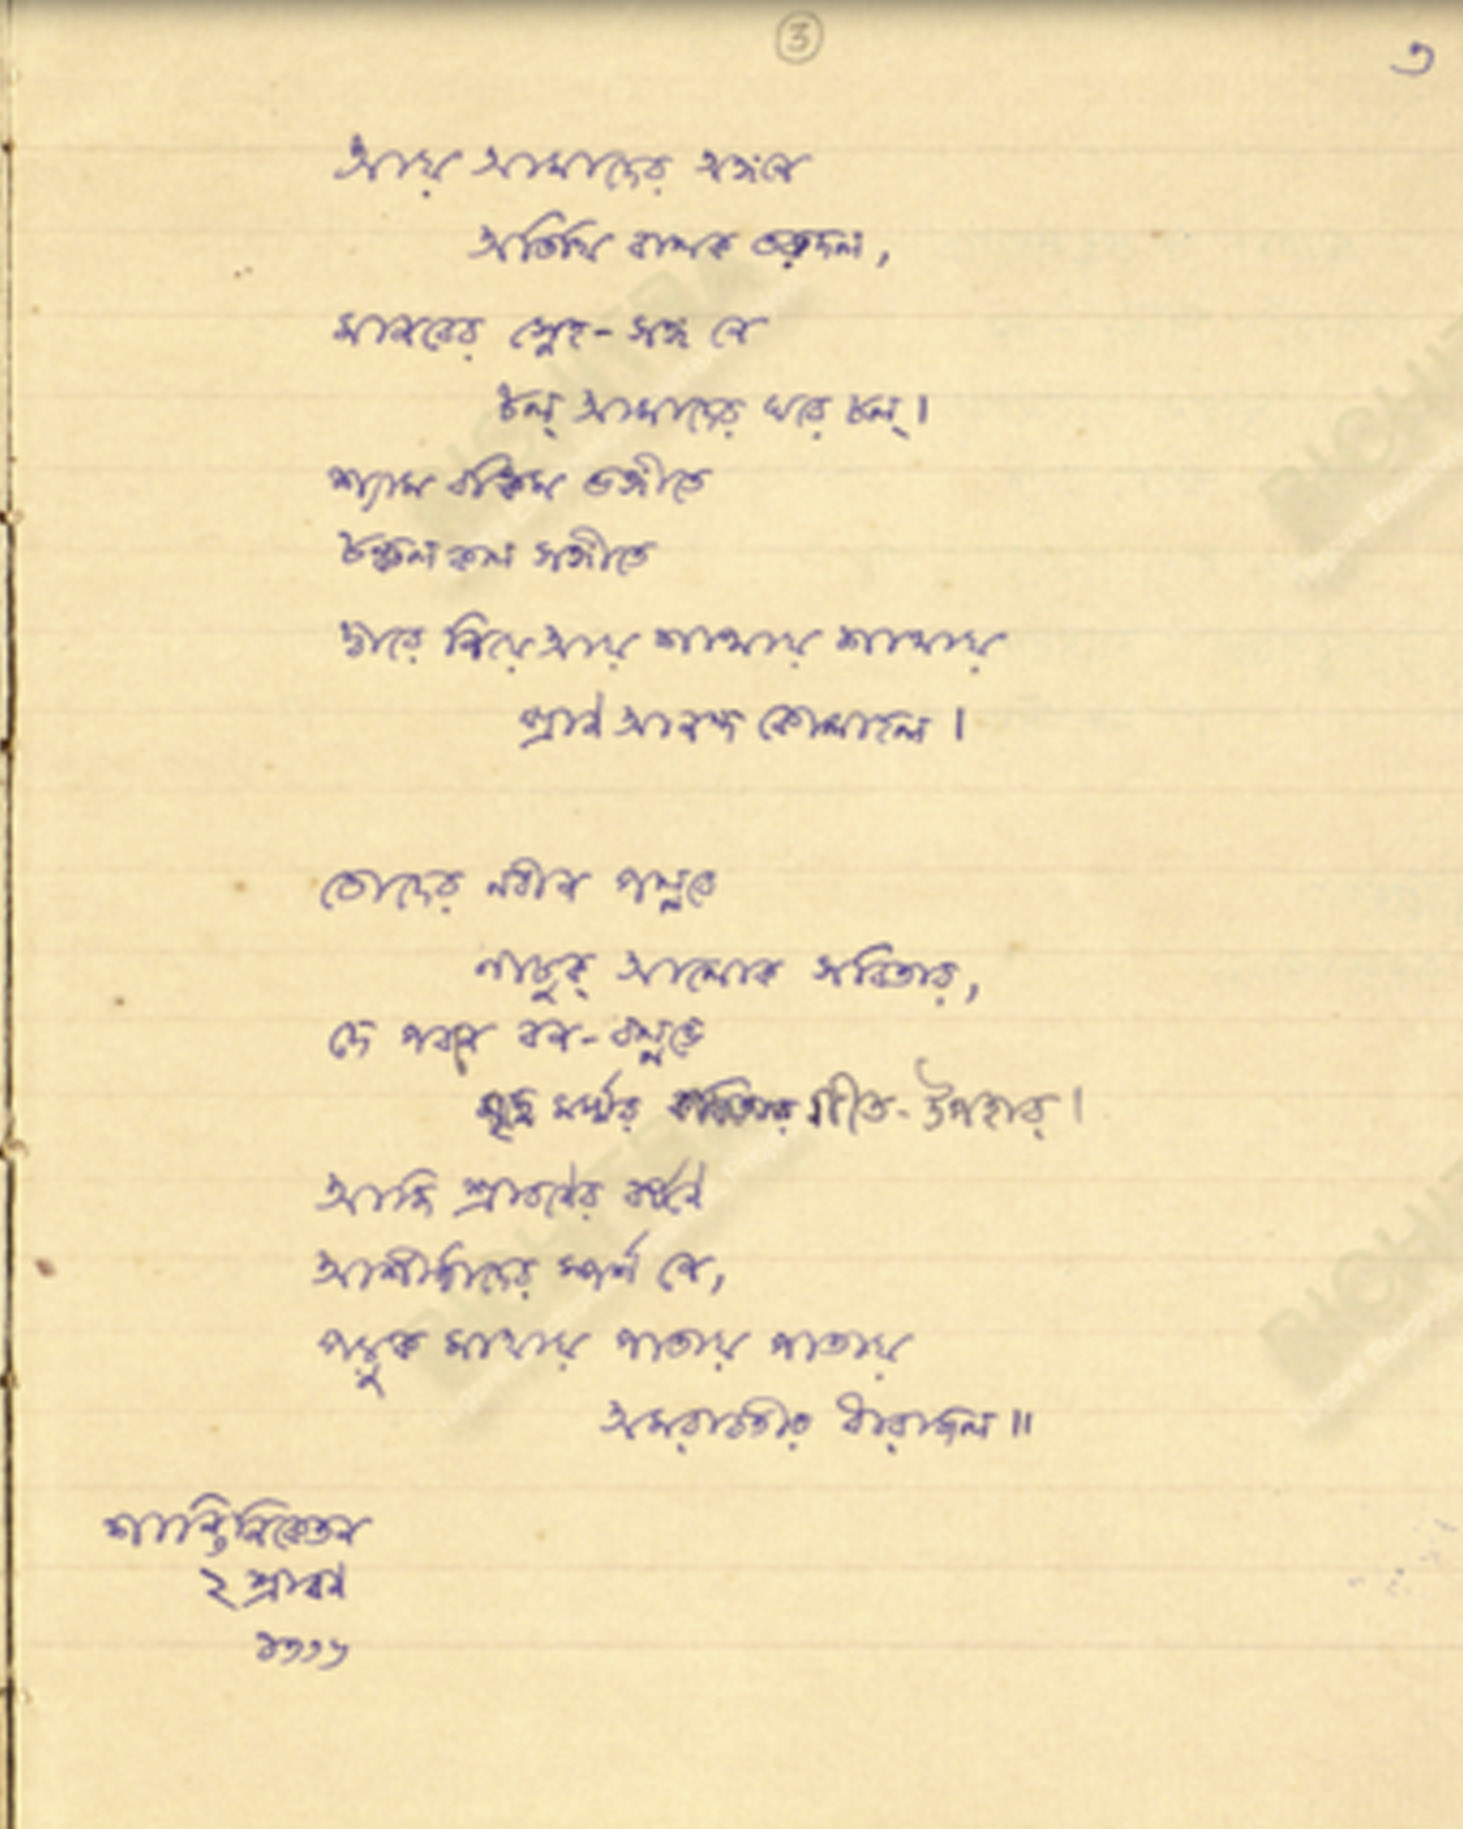 ③
৩
আয় আমাদের অঙ্গনে
অতিথি বালক তরুদল,
মানবের স্নেহ-সঙ্গ নে
চল্ আমাদের ঘরে চল্।
শ্যাম বঙ্কিম ভঙ্গীতে
চঞ্চল কল সঙ্গীতে
দ্বারে নিয়ে আয় শাখায় শাখায়
প্রাণ আনন্দ কোলাহল।
তোদের নবীন পল্লবে
নাচুক্ আলোক সবিতার,
দে পবনে বন-বল্লভে
মর্ম্মর গীত-উপহার।
আজি শ্রাবণের বর্ষণে
আশীর্ব্বাদের স্পর্শ নে,
পড়ুক মাথায় পাতায় পাতায়
অমরাবতীর ধারাজল॥
শান্তিনিকেতন
২ শ্রাবণ